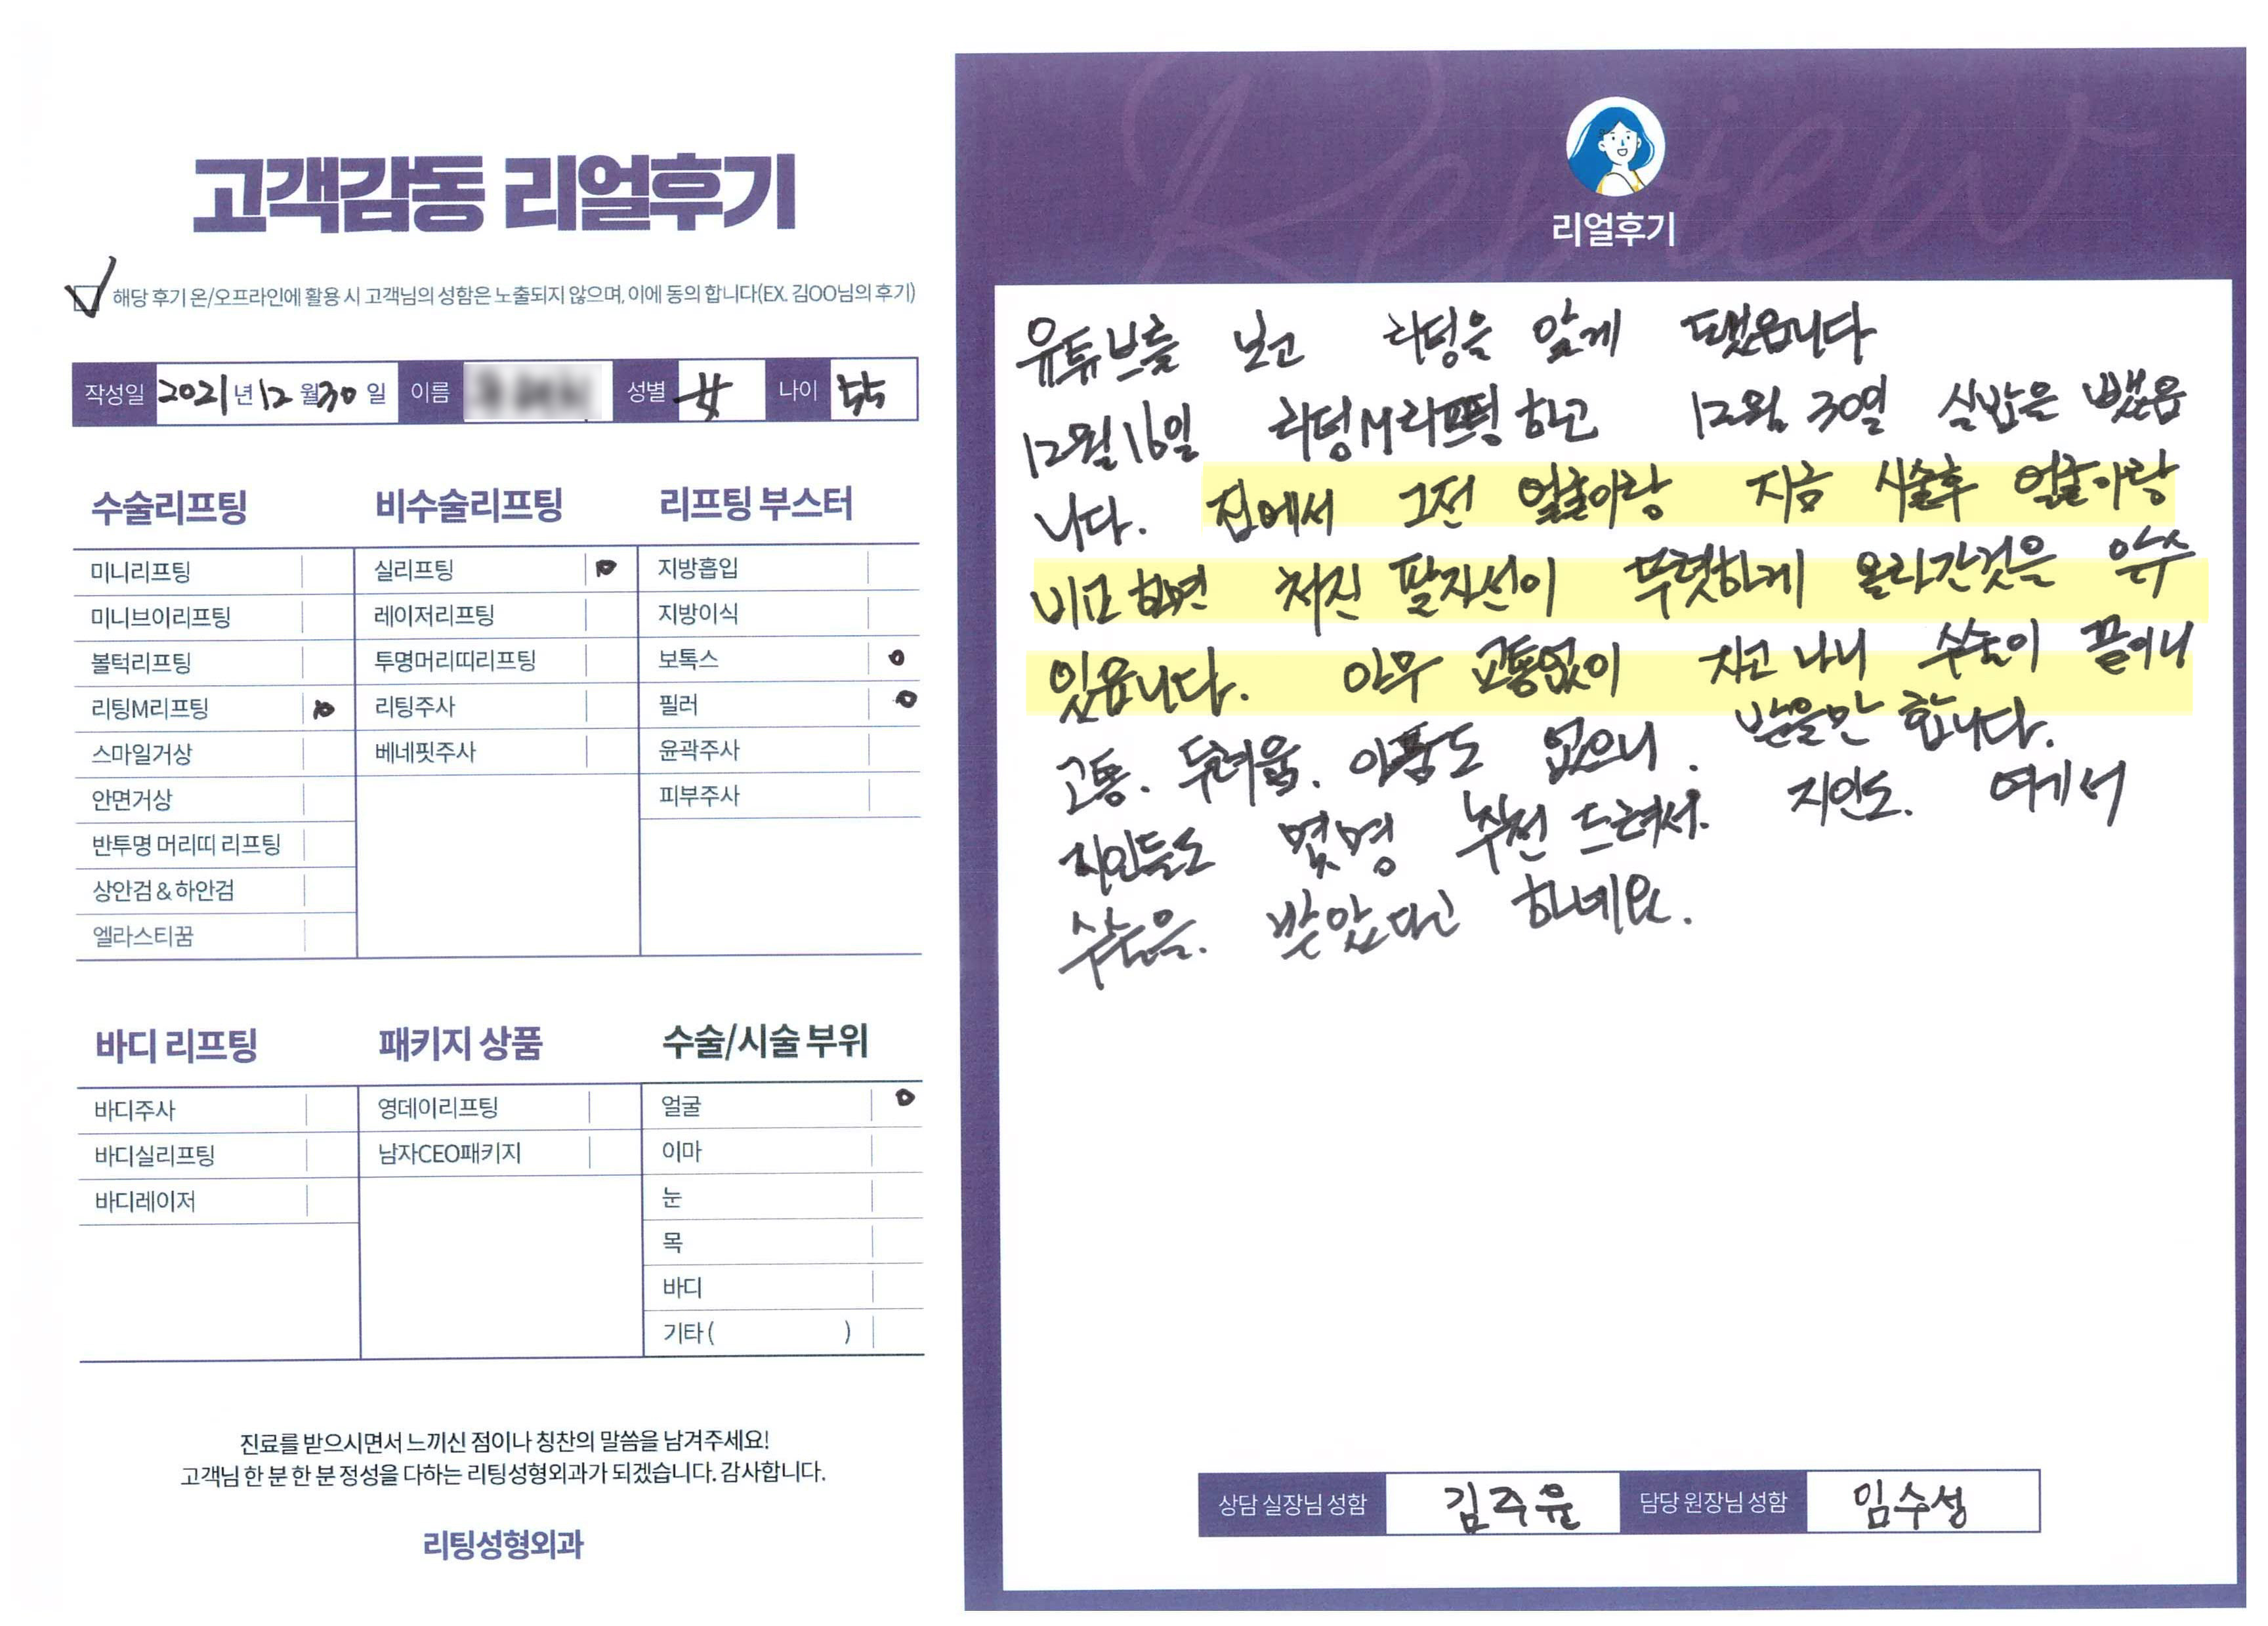 고객감동 리얼후기
해당 후기 온/오프라인에 활용 시 고객님의 성함은 노출되지 않으며, 이에 동의 합니다(EX. 김OO님의 후기)
작성일 2021년 12월 30일 이름 성별 女 나이 55
수술리프팅 비수술리프팅 리프팅 부스터
미니리프팅 실리프팅 지방흡입
미니브이리프팅 레이저리프팅 지방이식
볼턱리프팅 투명머리띠리프팅 보톡스
리팅M리프팅 리팅주사 필러
스마일거상 베네핏주사 윤곽주사
안면거상 피부주사
반투명 머리띠 리프팅
상안검 & 하안검
엘라스티꿈
바디 리프팅 패키지 상품 수술/시술 부위
바디주사 영데이리프팅 얼굴
바디실리프팅 남자CEO패키지 이마
바디레이저 눈
목
바디
기타 ( )
진료를 받으시면서 느끼신 점이나 칭찬의 말씀을 남겨주세요!
고객님 한 분 한 분 정성을 다하는 리팅성형외과가 되겠습니다. 감사합니다.
리팅성형외과
Review
리얼후기
유튜브를 보고 리팅을 알게 됐읍니다
12월 16일 리팅M리프팅 하고 12월 30일 실밥을 뺐읍
니다. 집에서 그전 얼굴이랑 지금 시술후 얼굴이랑
비교하면 쳐진 팔자선이 뚜렷하게 올라간것을 알수
있읍니다. 아무 고통없이 자고 나니 수술이 끝이니
고통. 두려움. 아픔도 없으니. 받을만 합니다.
지인들도 몇명 추천 드려서. 지인도. 여게서
수술을. 받았다고 하네요.
상담 실장님 성함 김주윤 담당 원장님 성함 임수성